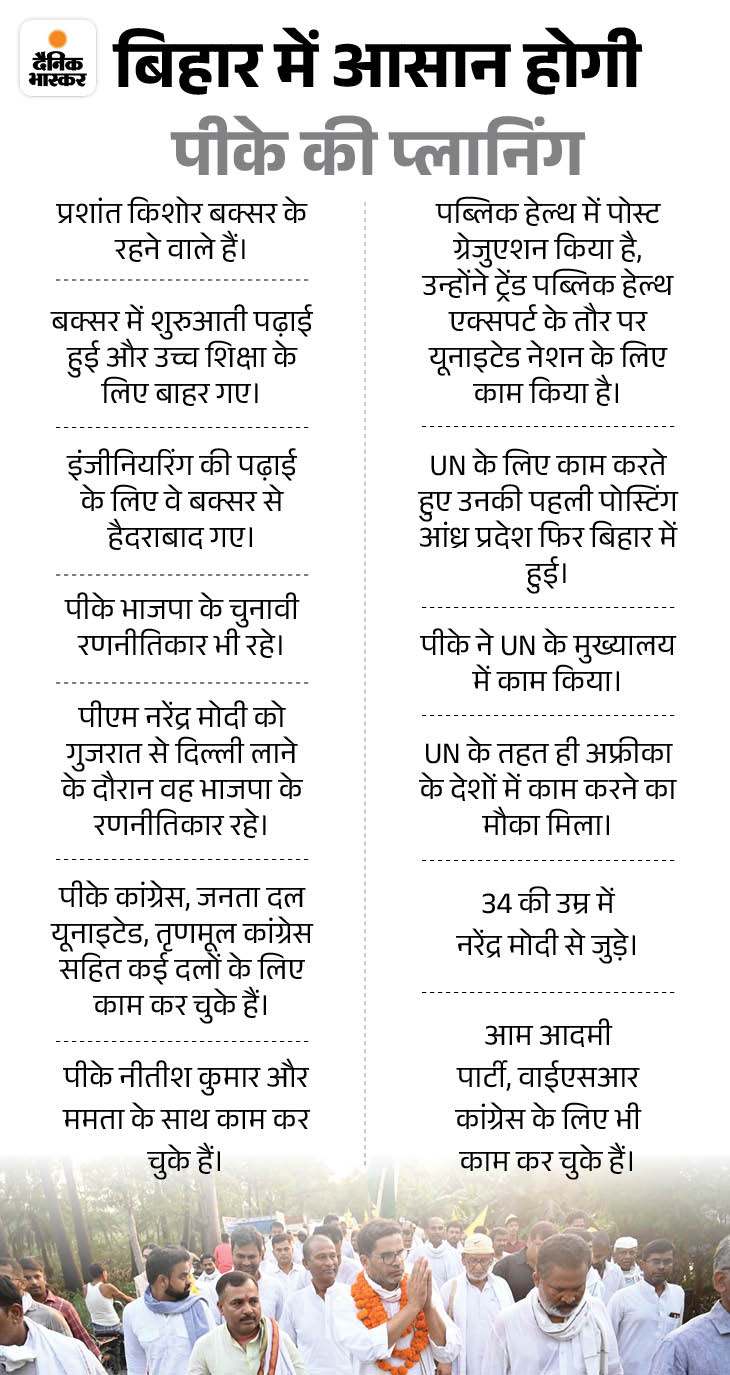 दैनिक
भास्कर
बिहार में आसान होगी
पीके की प्लानिंग
प्रशांत किशोर बक्सर के
रहने वाले हैं।
बक्सर में शुरुआती पढ़ाई
हुई और उच्च शिक्षा के
लिए बाहर गए।
इंजीनियरिंग की पढ़ाई
के लिए वे बक्सर से
हैदराबाद गए।
पीके भाजपा के चुनावी
रणनीतिकार भी रहे।
पीएम नरेंद्र मोदी को
गुजरात से दिल्ली लाने
के दौरान वह भाजपा के
रणनीतिकार रहे।
पीके कांग्रेस, जनता दल
यूनाइटेड, तृणमूल कांग्रेस
सहित कई दलों के लिए
काम कर चुके हैं।
पीके नीतीश कुमार और
ममता के साथ काम कर
चुके हैं।
पब्लिक हेल्थ में पोस्ट
ग्रेजुएशन किया है,
उन्होंने ट्रेंड पब्लिक हेल्थ
एक्सपर्ट के तौर पर
यूनाइटेड नेशन के लिए
काम किया है।
UN के लिए काम करते
हुए उनकी पहली पोस्टिंग
आंध्र प्रदेश फिर बिहार में
हुई।
पीके ने UN के मुख्यालय
में काम किया।
UN के तहत ही अफ्रीका
के देशों में काम करने का
मौका मिला।
34 की उम्र में
नरेंद्र मोदी से जुड़े।
आम आदमी
पार्टी, वाईएसआर
कांग्रेस के लिए भी
काम कर चुके हैं।